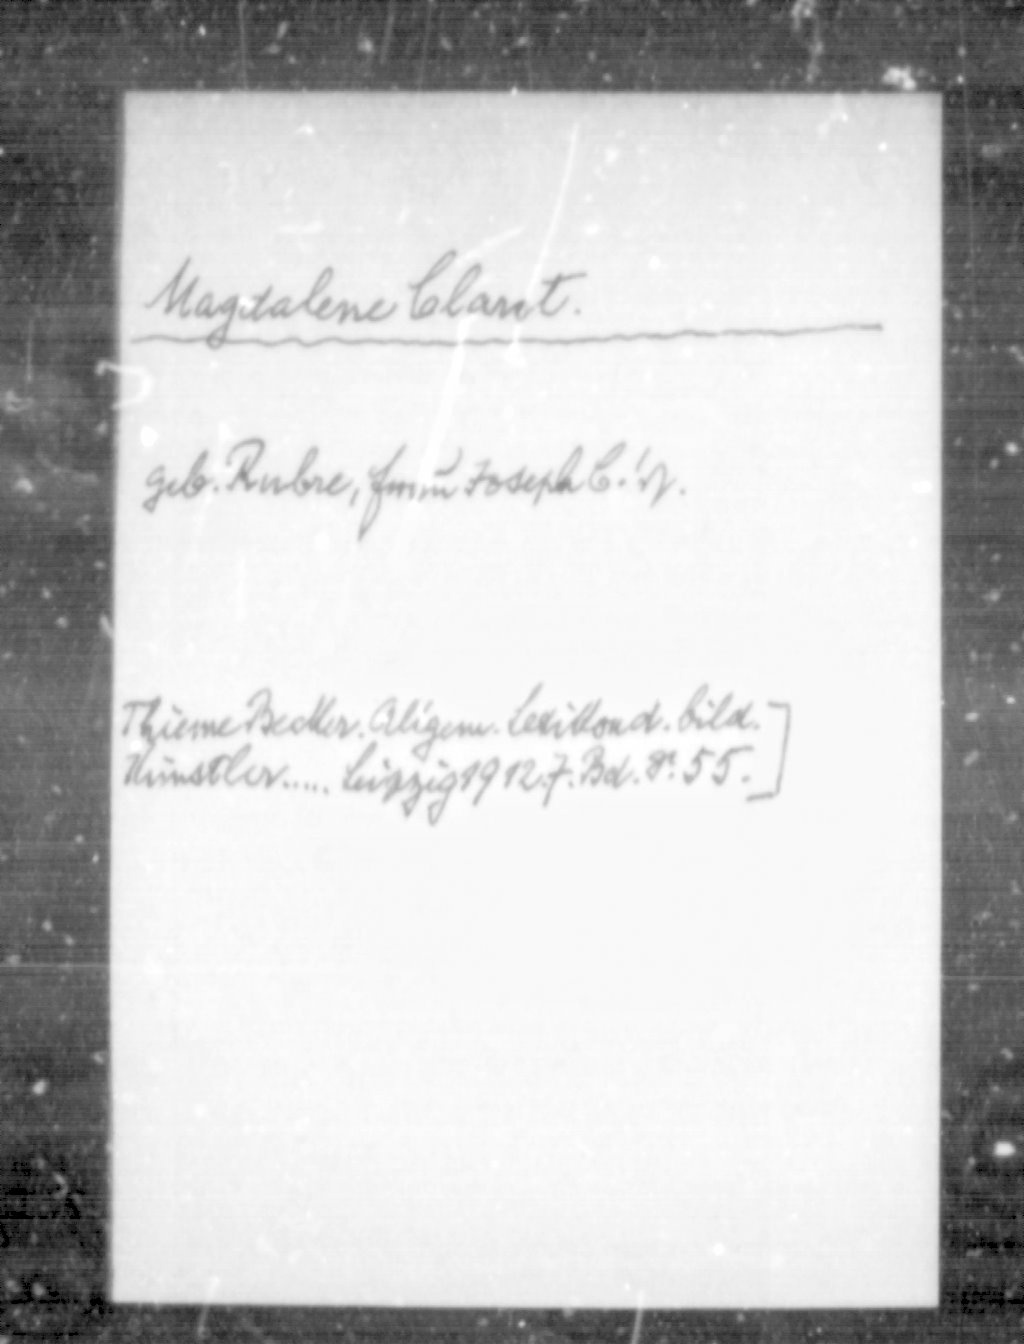 Magdalene Clant.
geb. Rubre, frau Joseph C.'s.
Thieme Becker. Allgem. Lexikon d. bild.
Künstler..... Leipzig 1912. 7. Bd. S. 55.]